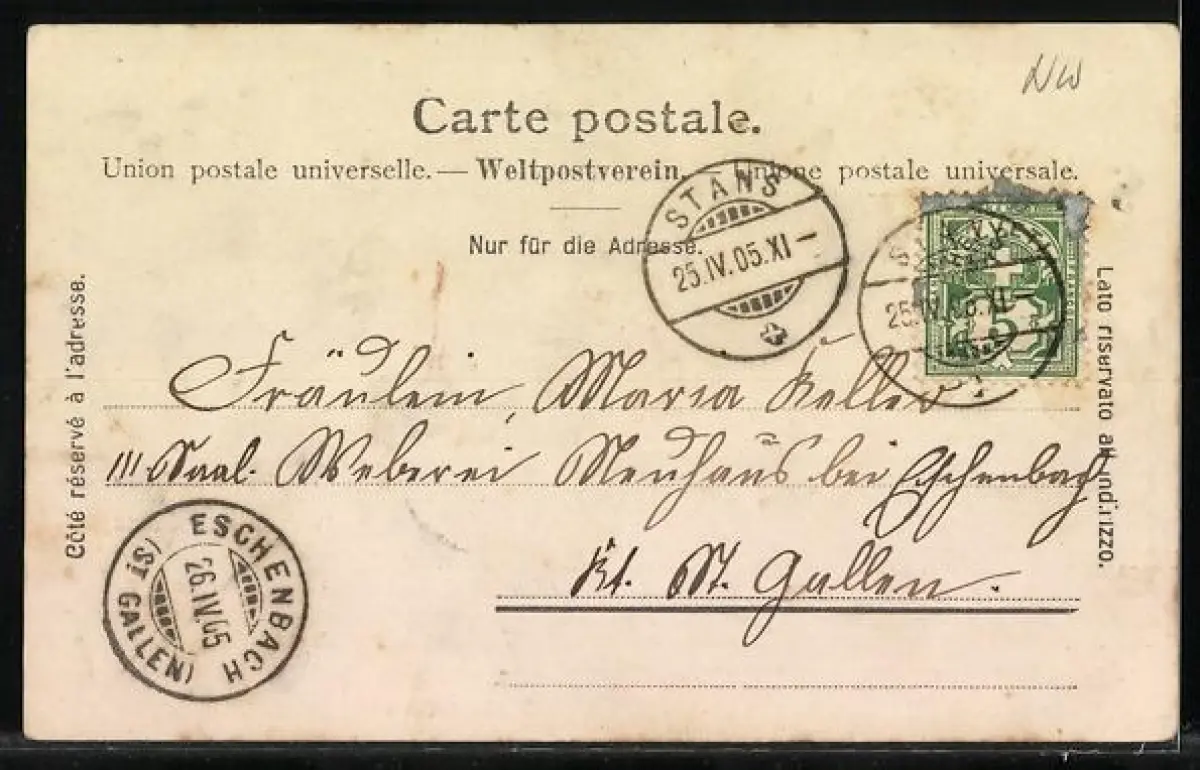 NW
Carte postale.
Union postale universelle. — Weltpostverein. — Unione postale universale.
Nur für die Adresse.
STANS
25.IV.05.XI –
25.IV.05.XI –
5
Côté réservé à l'adresse.
Lato riservato all'indirizzo.
Fräulein, Maria Keller
III. Saal. Weberei Neuhaus bei Eschenbach
Kt. St. Gallen.
ESCHENBACH
26.IV.05
(ST. GALLEN)